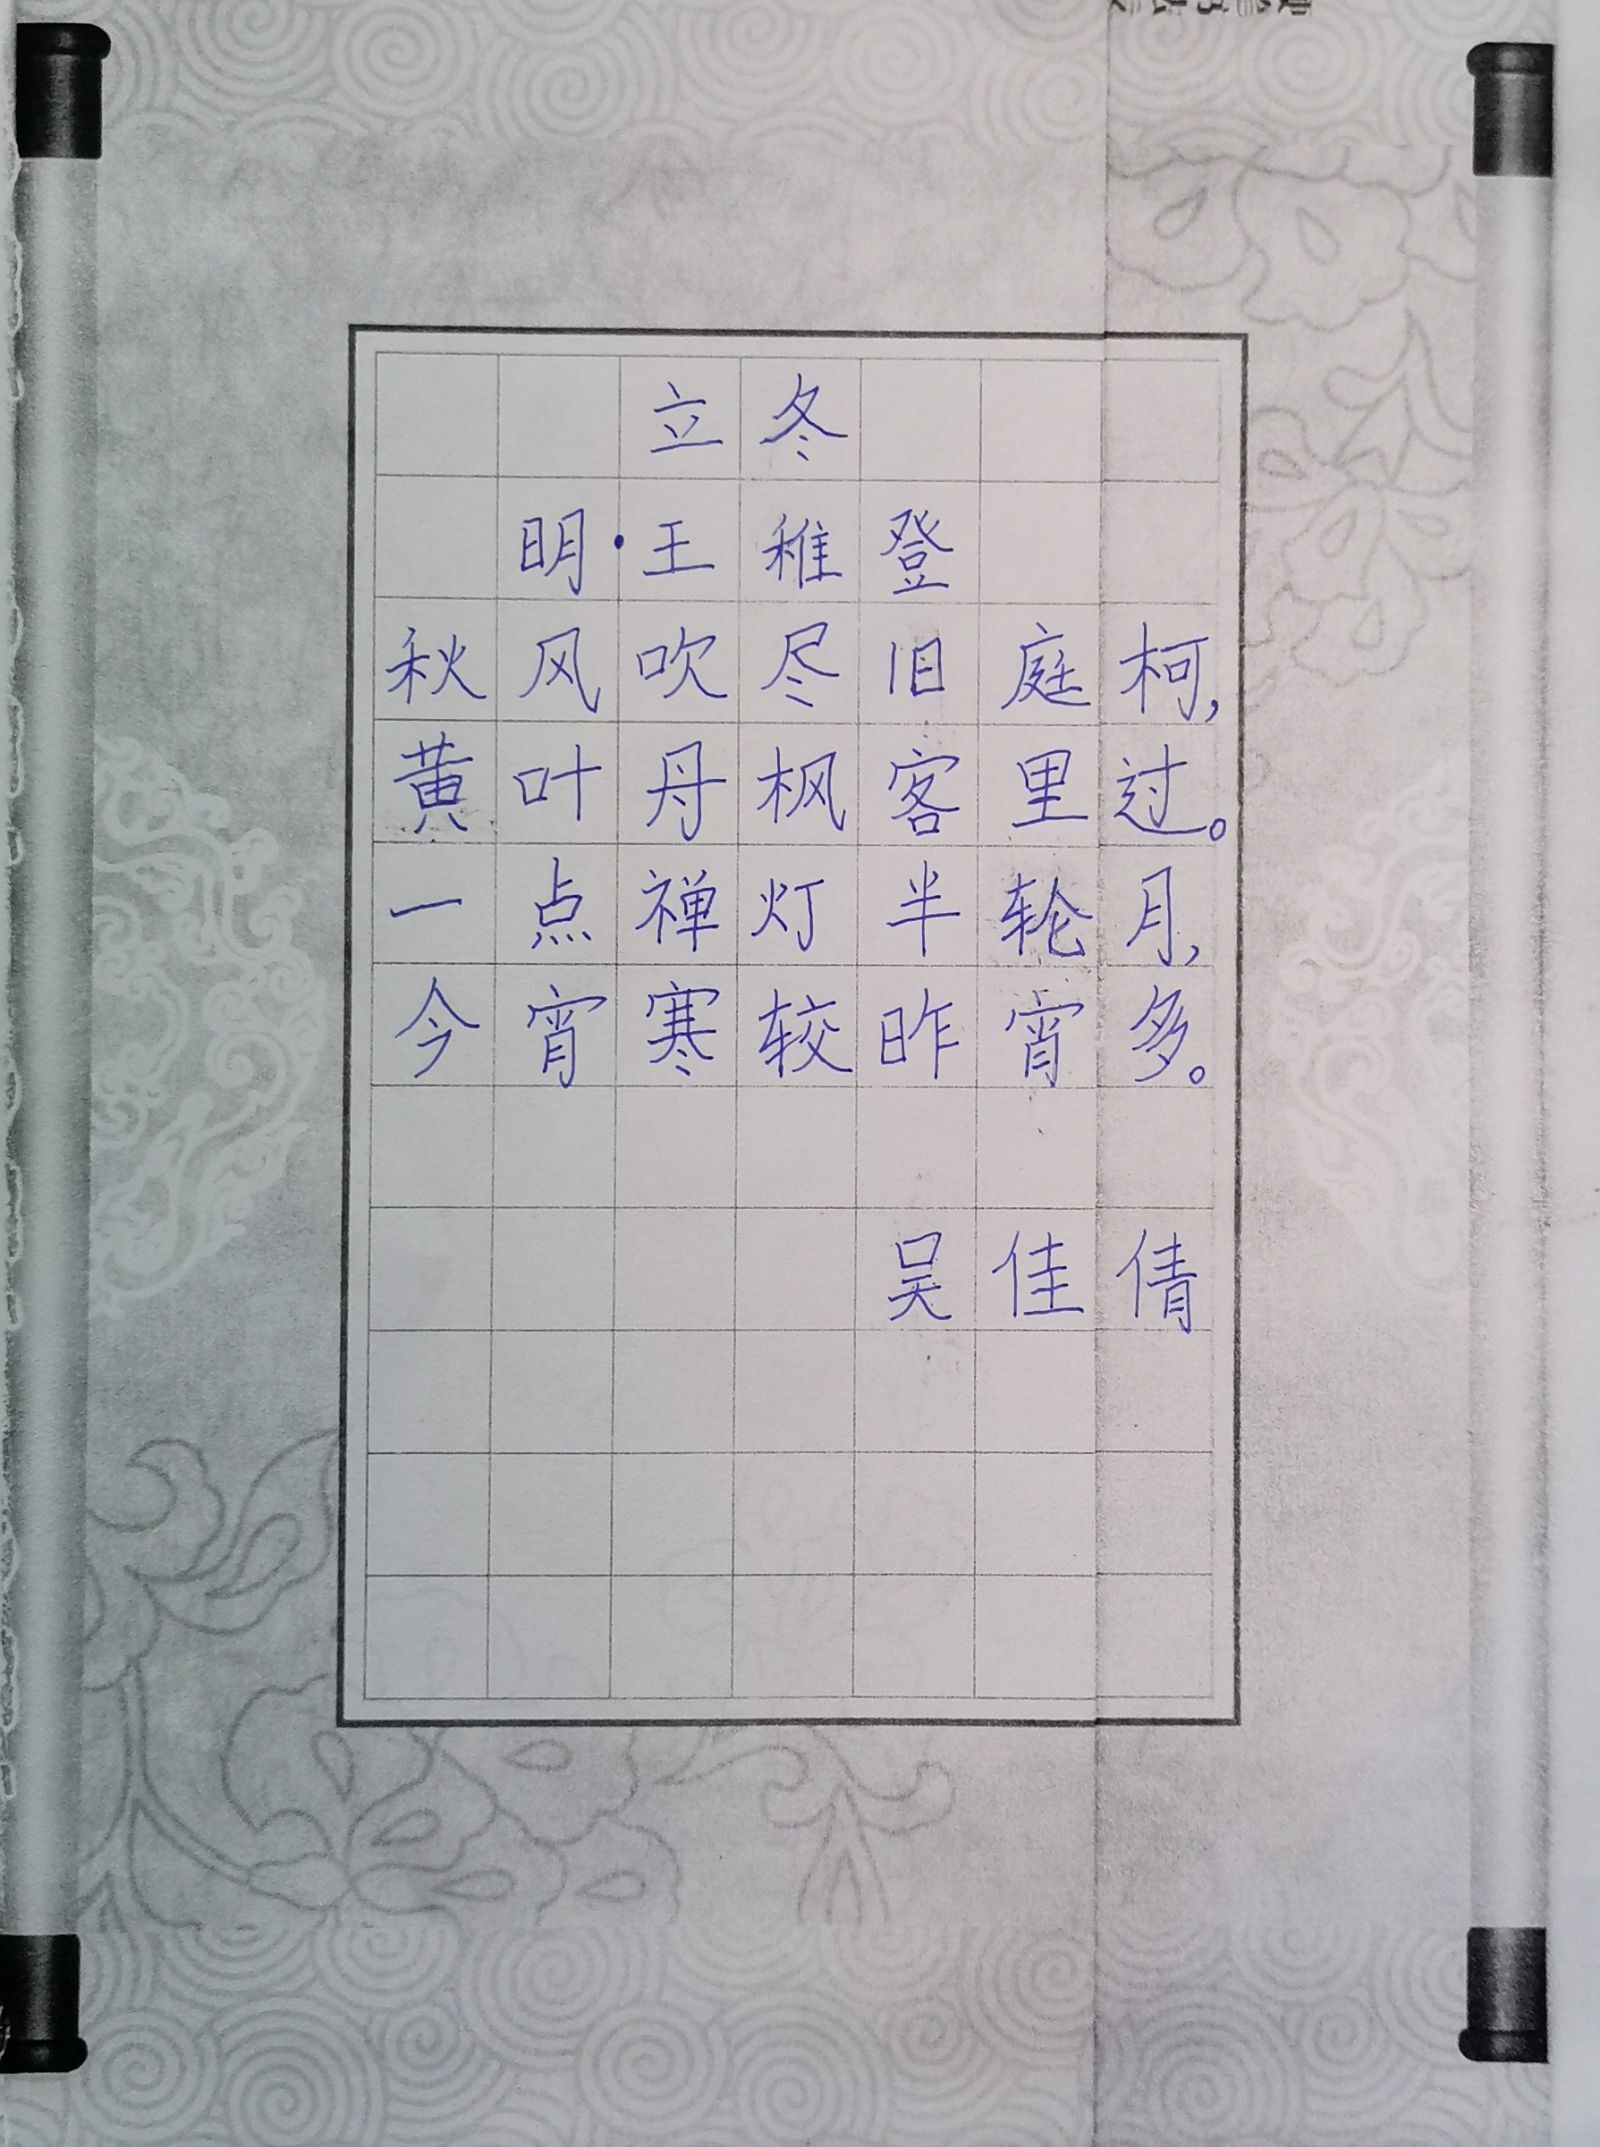 立冬
明·王稚登
秋风吹尽旧庭柯,
黄叶丹枫客里过。
一点禅灯半轮月,
今宵寒较昨宵多。
吴佳倩